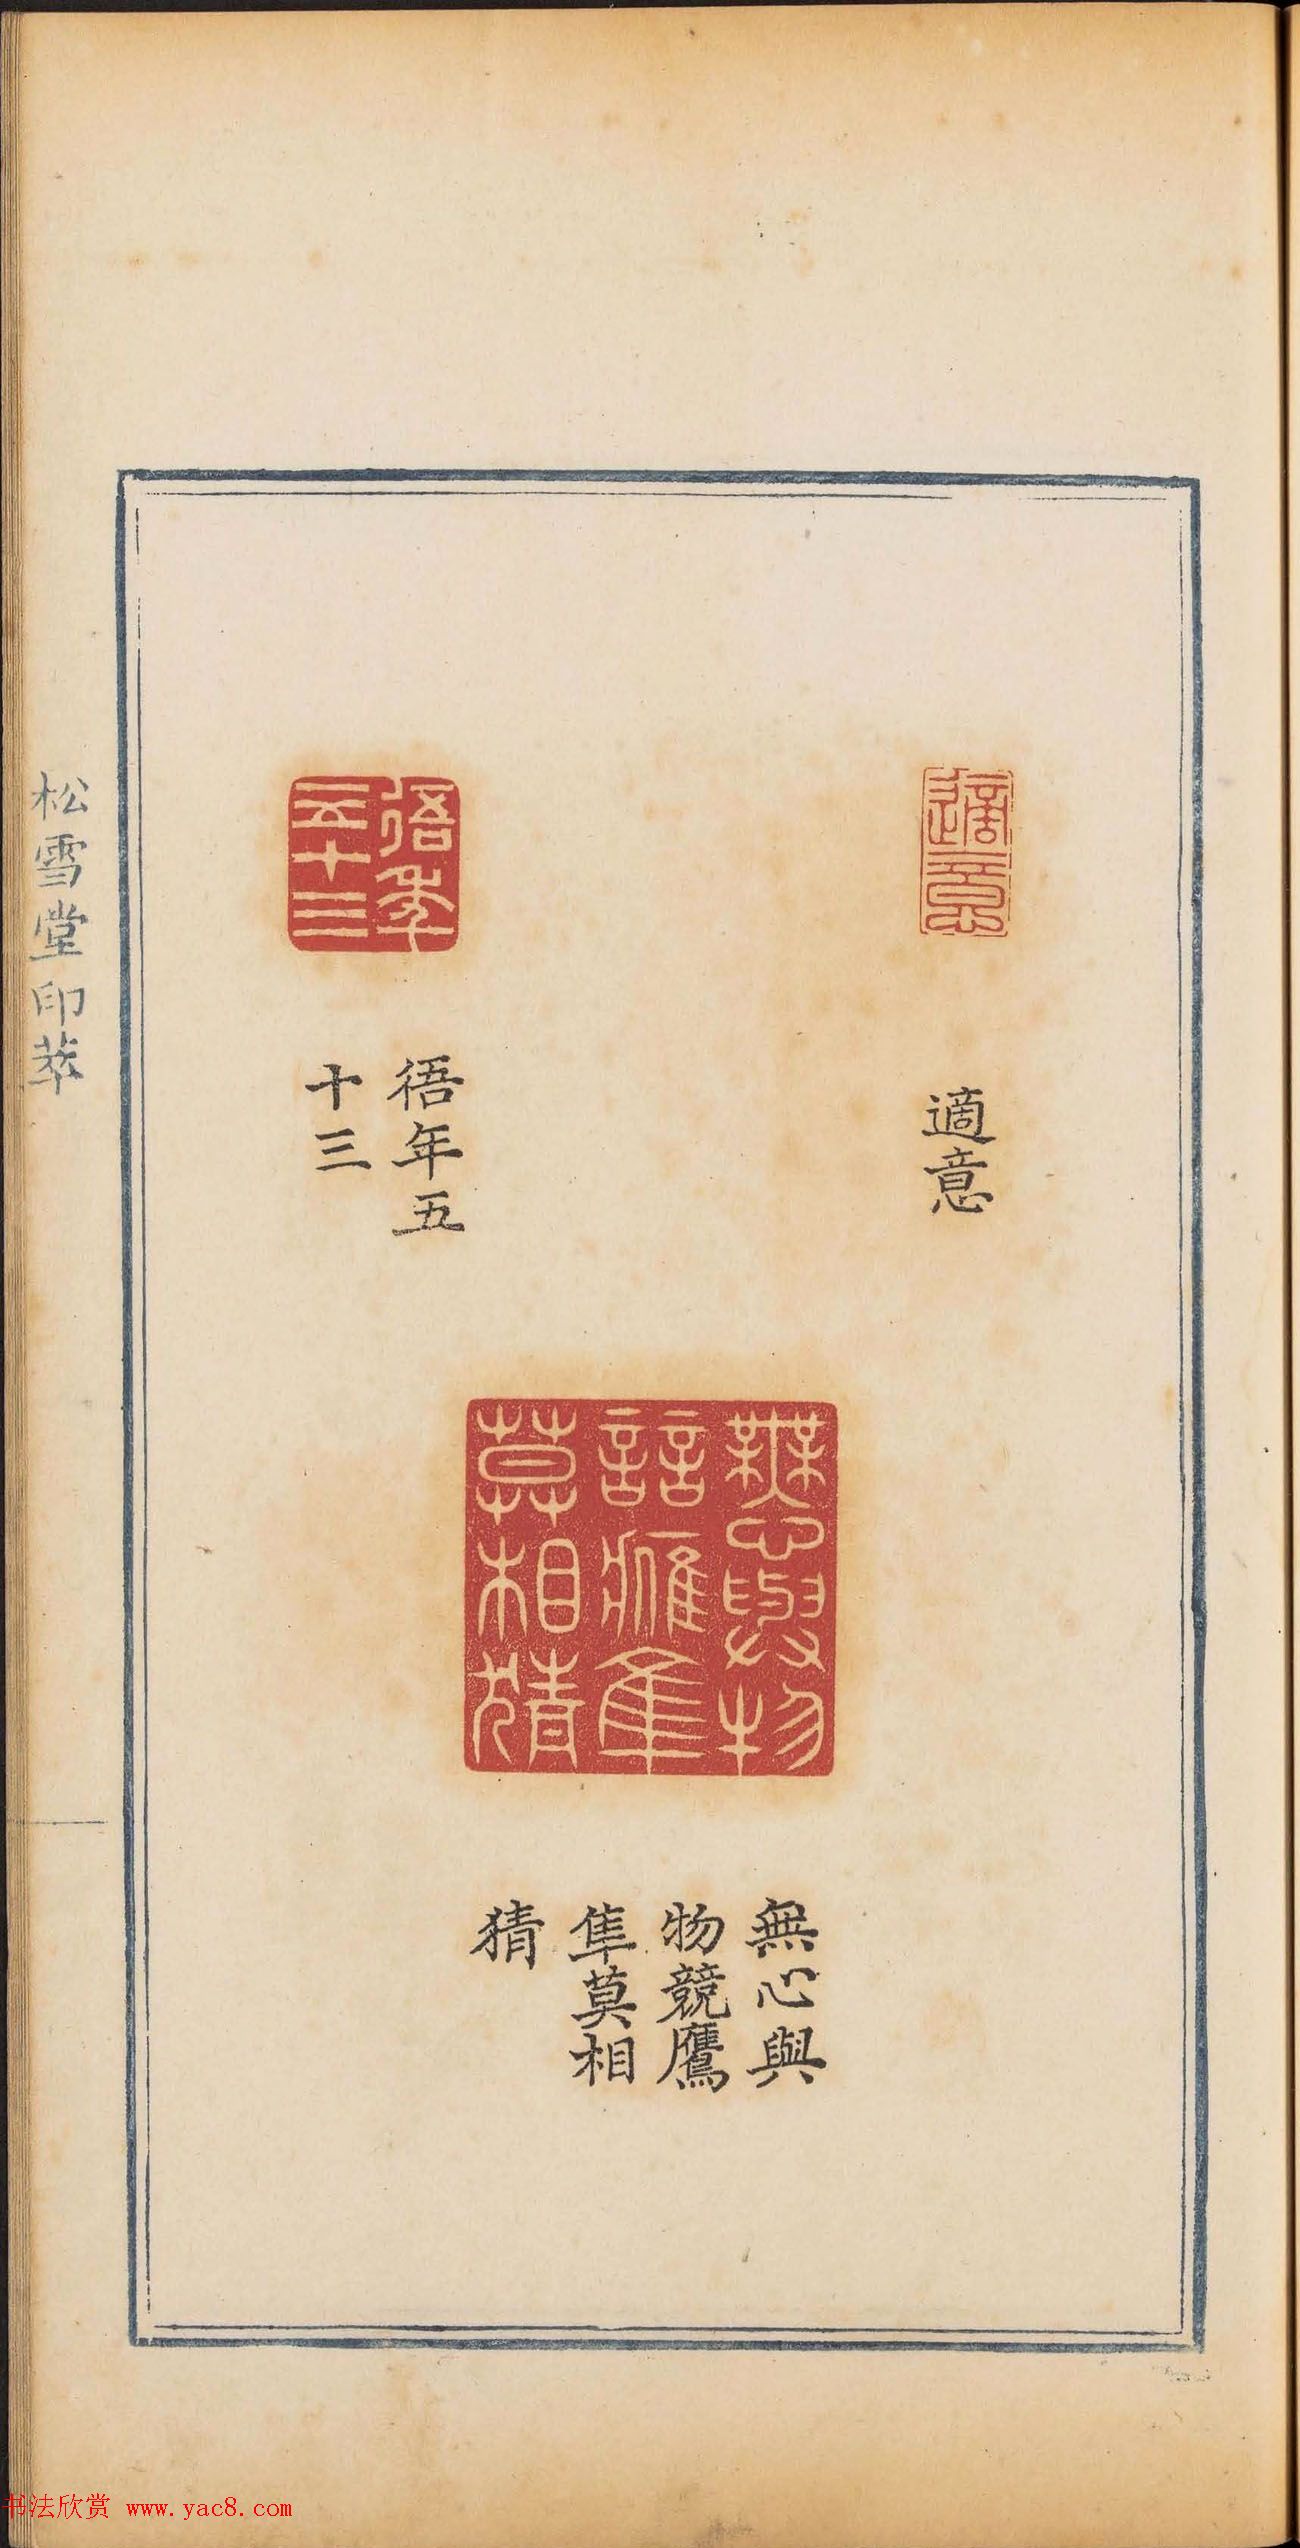 適意
適意
𢓲年五十三
𢓲年五
十三
無心與物
競鷹隼
莫相猜
無心與
物競鷹
隼莫相
猜
松雪堂印萃
书法欣赏 www.yac8.com